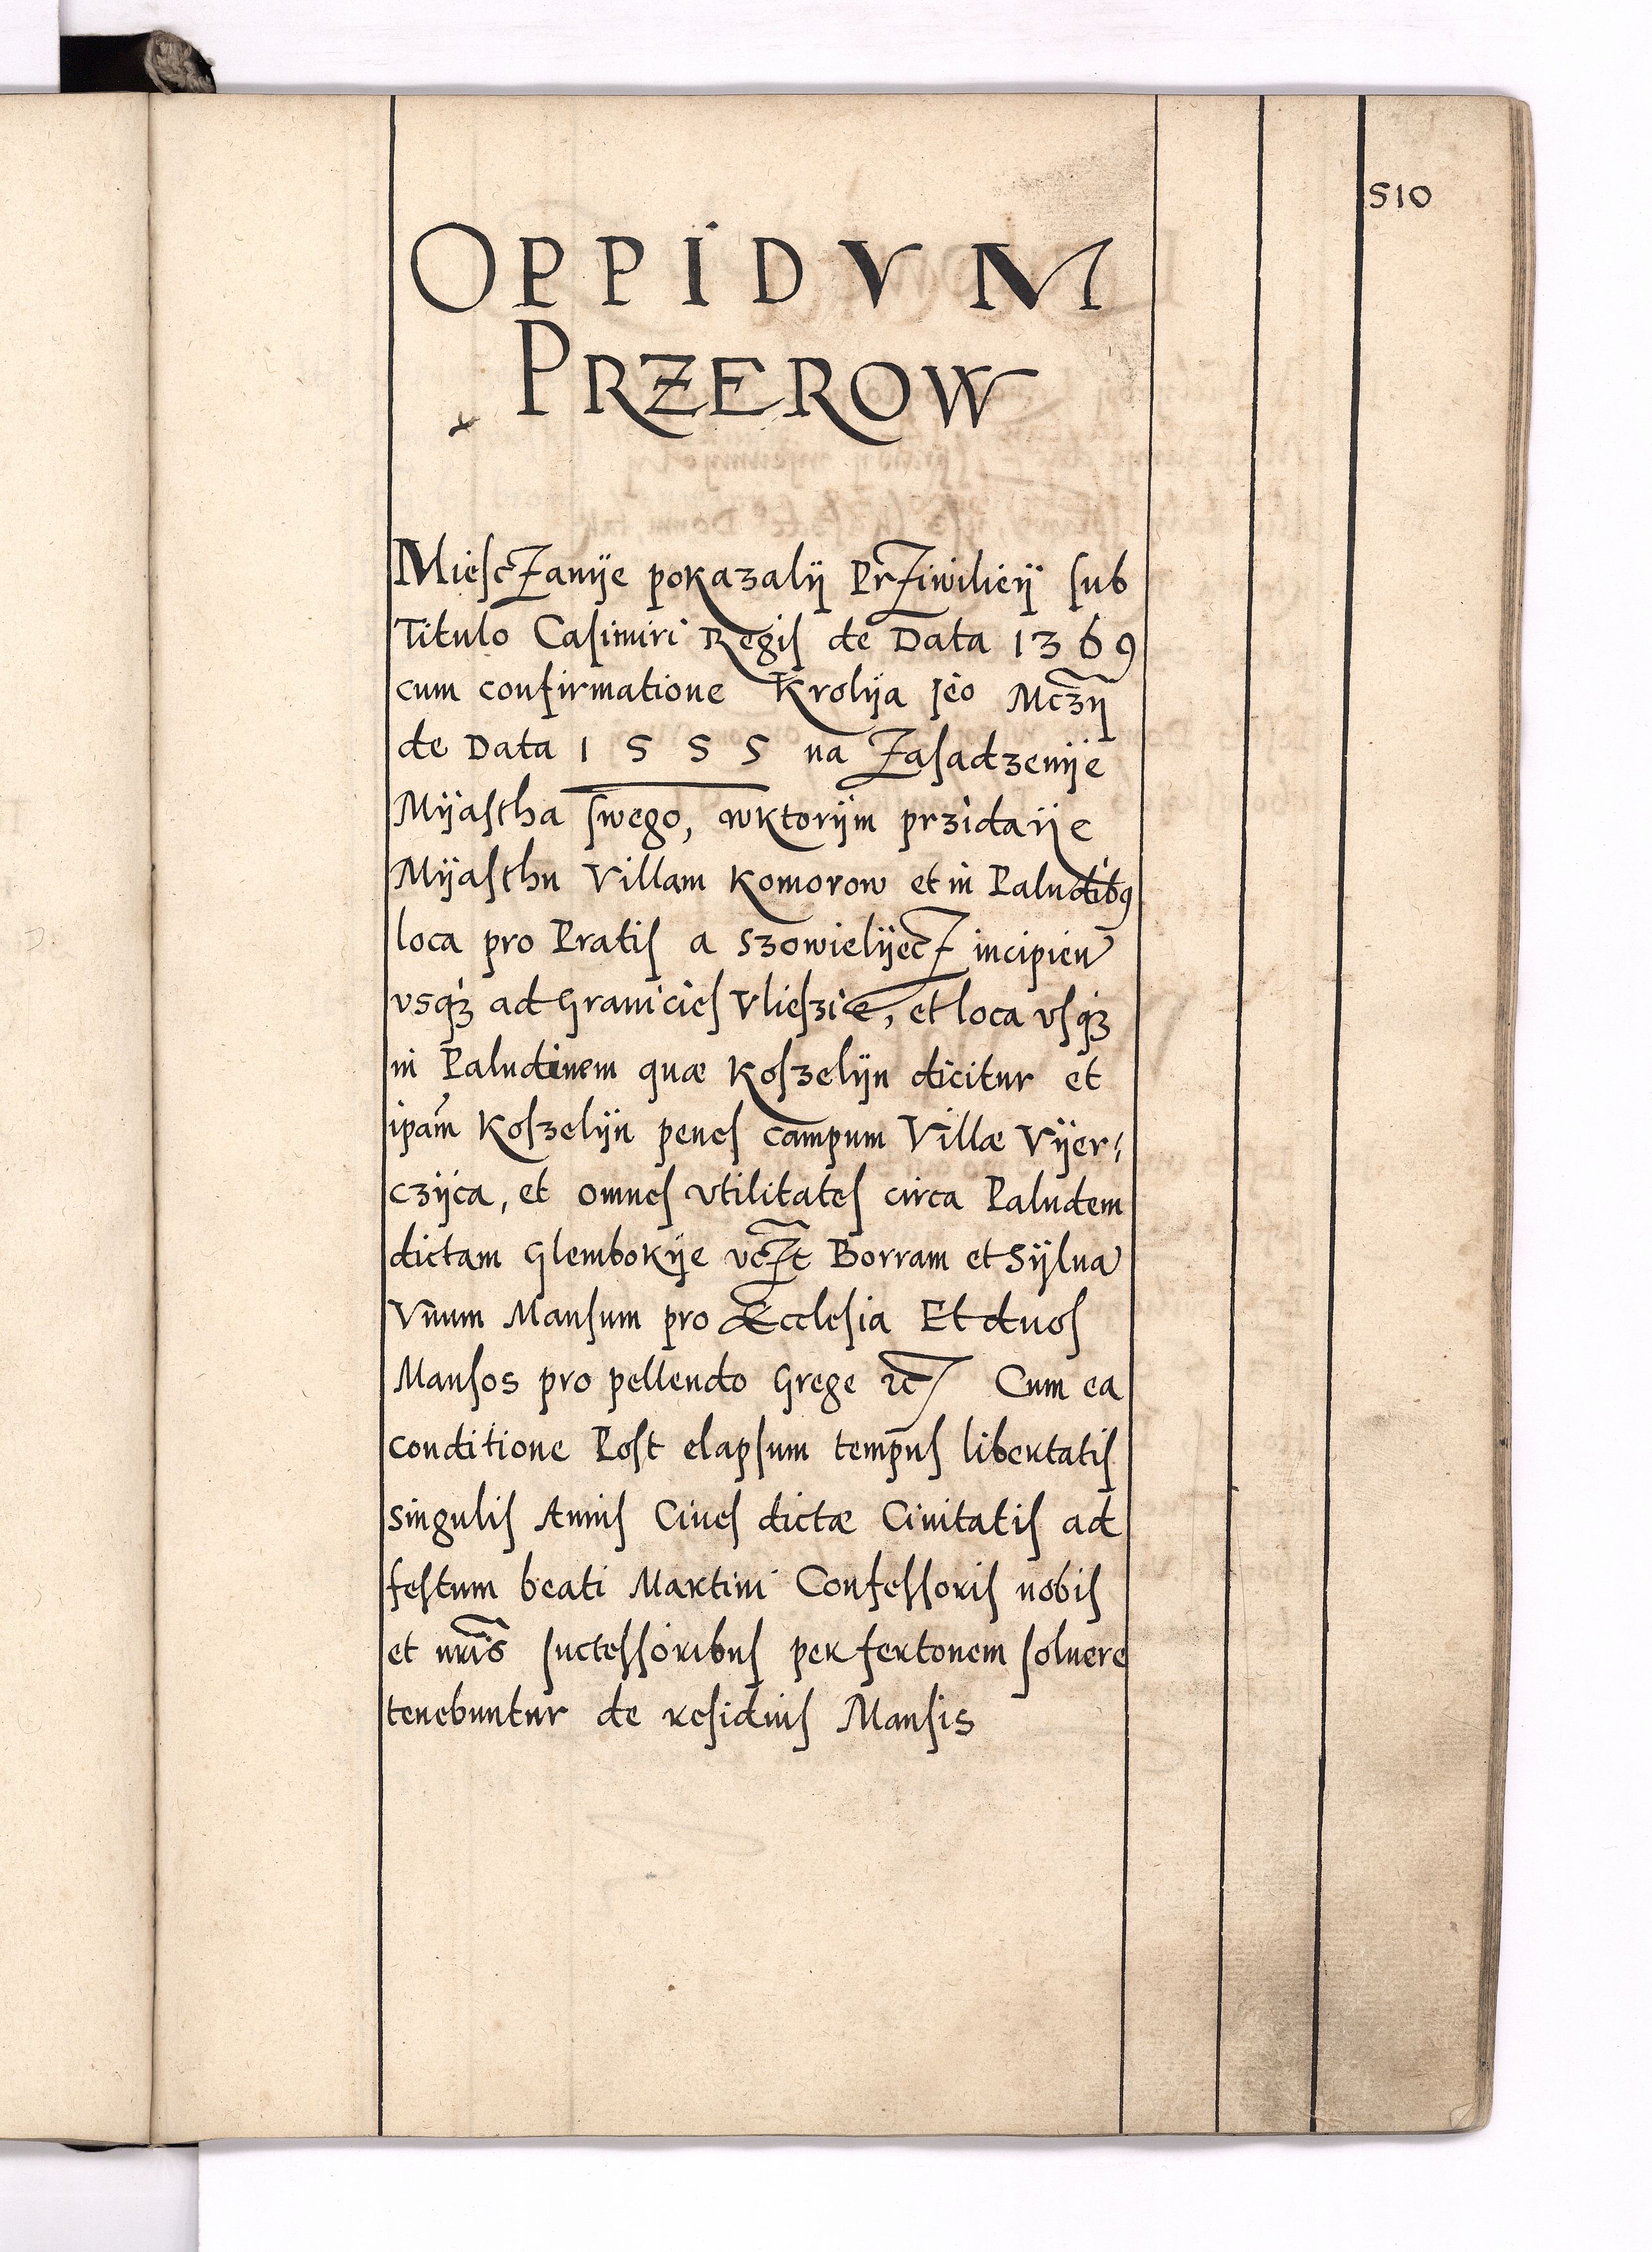 510
OPPIDVM
PRZEROW
MiesćZanÿe pokazalÿ PrZiwilieÿ sub
Titulo Casimiri Regis de Data 1369
cum confirmatione Krolÿa Jeo Mczÿ
de Data 1555 na Zasadzenÿe
Mÿastha swego, wktorÿm przidaÿe
Mÿasthu Villam Komorow et in Paludibꝰ
loca pro Pratis a SzowielÿecZ incipien
vsqꝫ ad Granicies Vlieszie, et loca vsqꝫ
in Paludinem quæ Koszelÿn dicitur et
ipam̃ Koszelÿn penes campum Villæ Vÿer⸗
czÿca, et omnes vtilitates circa Paludem
dictam Glembokÿe Borram et Sÿlua
Vnum Mansum pro Æcclesia Et duos
Mansos pro pellendo Grege ꝛc̃ Cum ea
conditione Post elapsum tempus libertatis
singulis Annis Ciues dictæ Ciuitatis ad
festum beati Martini Confessoris nobis
et nr̃is successoribus per fertonem soluere
tenebuntur de residuis Mansis